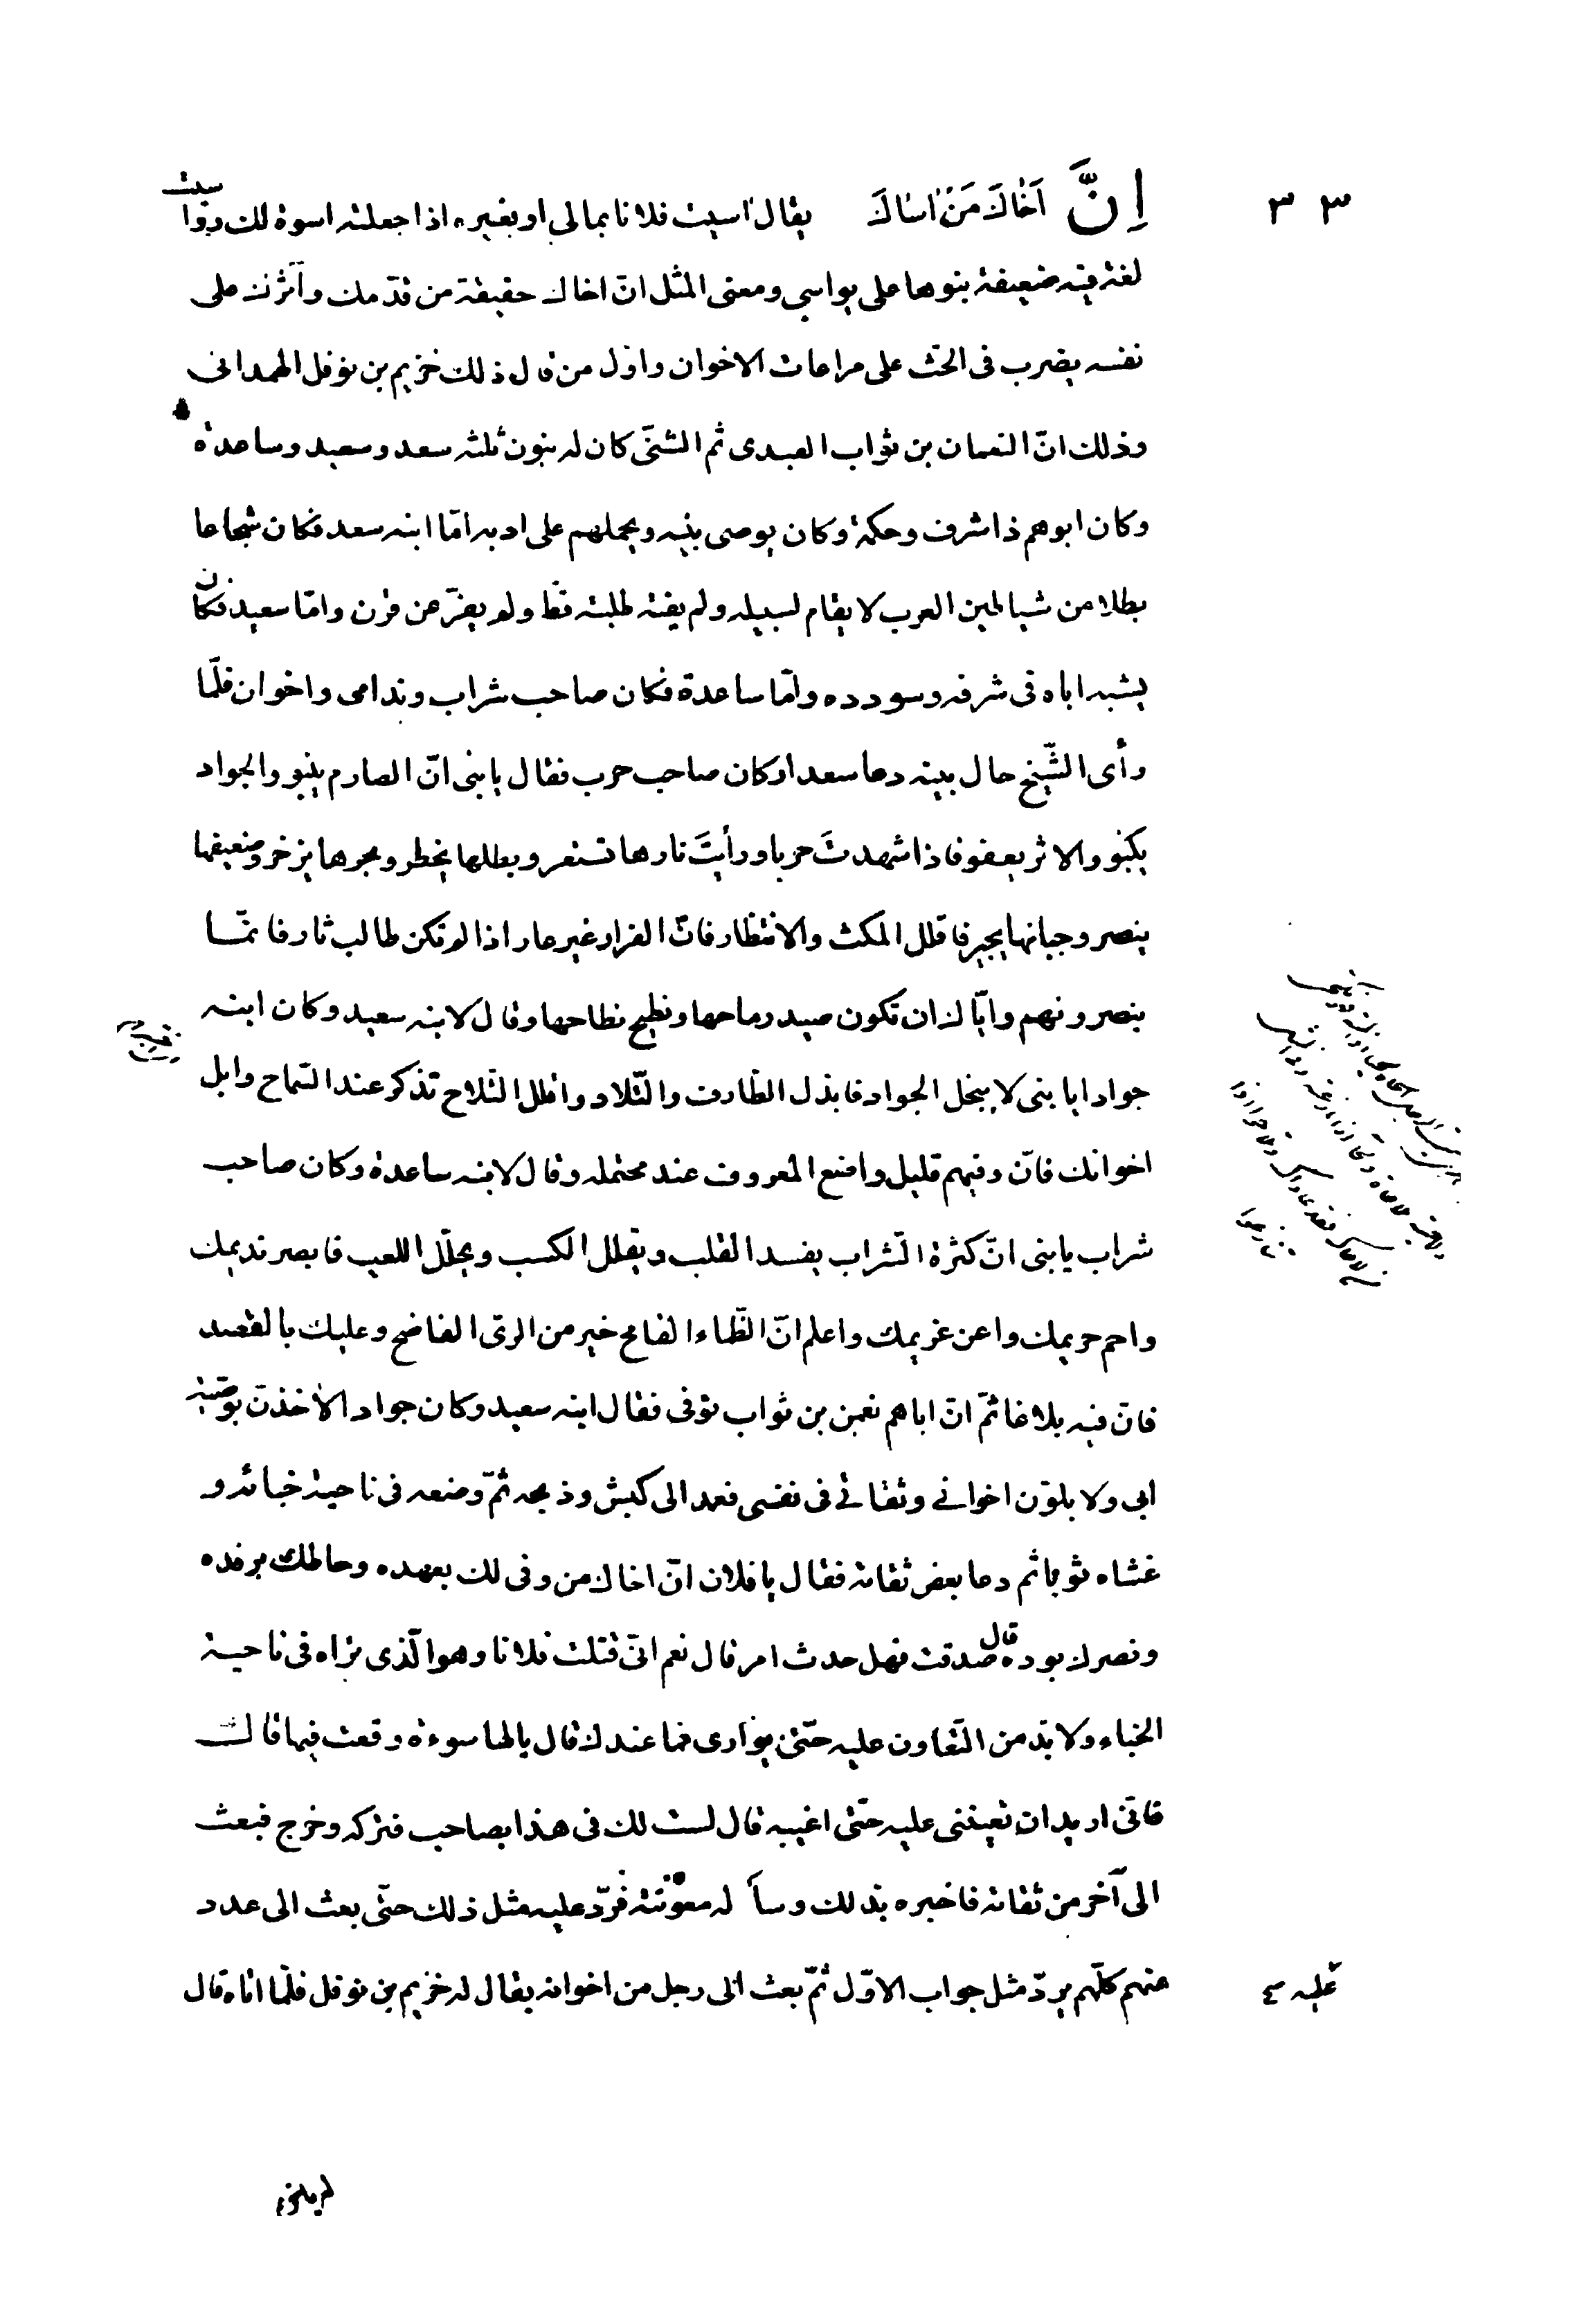 ٣٣ اِنَّ اَخاكَ مَنْ اٰساكَ يقال اسيت فلانا بمالى او بغيره اذا جعلته اسوة لك وواسيت
لغة فيه ضعيفة بنوها على يواسى ومعنى المثل انّ اخاك حقيقة من قدّمك وآثرك على
نفسه يضرب فى الحثّ على مراعات الاخوان واوّل من قال ذلك خزيم بن نوفل الهمدانى
وذلك انّ النعمان بن ثواب العبدى ثم الشنّى كان له بنون ثلثه سعد وسعيد وساعدة
وكان ابوهم ذا شرف وحكمة وكان يوصى بنيه ويحملهم على ادبه امّا ابنه سعد فكان شجاعا
بطلا من شياطين العرب لا يقام لسبيله ولم يفته طلبته قطّ ولم يفرّ عن قرن وامّا سعيد فكان
يشبه اباه فى شرفه وسودده وامّا ساعدة فكان صاحب شراب وندامى واخوان فلمّا
رأى الشّيخ حال بنيه دعا سعدا وكان صاحب حرب فقال يا بنى انّ الصارم ينبو والجواد
يكبو والاثر يعفو فاذا شهدتَ حربا ورأيتَ نارها تستعر وبطلها يخطر وبحرها يزخر وضعيفها
ينصر وجبانها يجبر فاقلل المكث والانتظار فانّ الفرار غير عار اذا لم تكن طالب ثار فانمّا
ينصرونهم وايّاك ان تكون صيد رماحها ونطيح نطاحها وقال لابنه سعيد وكان ابنه
جوادا يا بنى لا يبخل الجواد فابذل الطّارف والتّلاد واقلل التلاح تذكر عند السّماح وابل
اخوانك فانّ وفيهم قليل واصنع المعروف عند محتمله وقال لابنه ساعدة وكان صاحب
شراب يا بنى انّ كثرة الشّراب يفسد القلب ويقلل الكسب ويحلّل اللعب فابصر نديمك
واحم حريمك واعن غريمك واعلم انّ الظّماء القامح خير من الرىّ الفاضح وعليك بالقصد
فانّ فيه بلاغا ثمّ انّ اباهم نعمن بن ثواب توفى فقال ابنه سعيد وكان جوادا لآخذنّ بوصّية
ابى ولا بلونّ اخوانى وثقاتى فى نفسى فعمد الى كبش وذبحه ثمّ وضعه فى ناحية خبائه و
غشاه ثوبا ثم دعا بعض ثقاته فقال يا فلان انّ اخاك من وفى لك بعهده وحاطك برفده
ونصرك بوده قال صدقت فهل حدث امر قال نعم انّى قتلت فلانا وهو الّذى تراه فى ناحية
الخباء ولا بدّ من التّعاون عليه حتّى يوارى فما عندك قال يا لها سوءة وقعت فيها قال
فانّى اريد ان تعيننى عليه حتّى اغيبه قال لست لك فى هذا بصاحب فتركه وخرج فبعث
الى آخر من ثقاته فاخبره بذلك وسأ له معونته فردّ عليه مثل ذلك حتّى بعث الى عدد
منهم كلّهم يردّ مثل جواب الاوّل ثمّ بعث الى رجل من اخوانه يقال له خزيم بن نوفل فلمّا اتاه قال
عليه